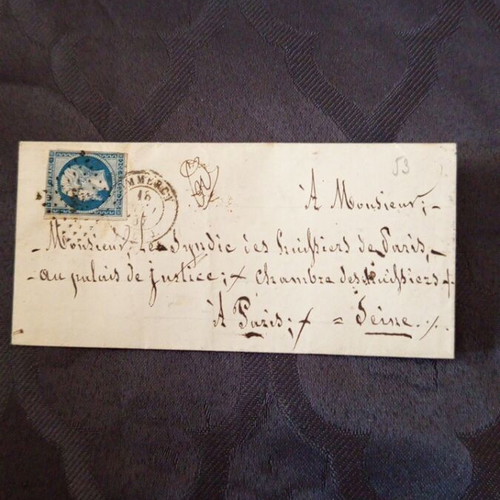 53
MMERCY
15
À Monsieur,-
- Monsieur, Le Syndic des huissiers de Paris,-
- au palais de justice; + chambre des huissiers +
À Paris; + = Seine. /.